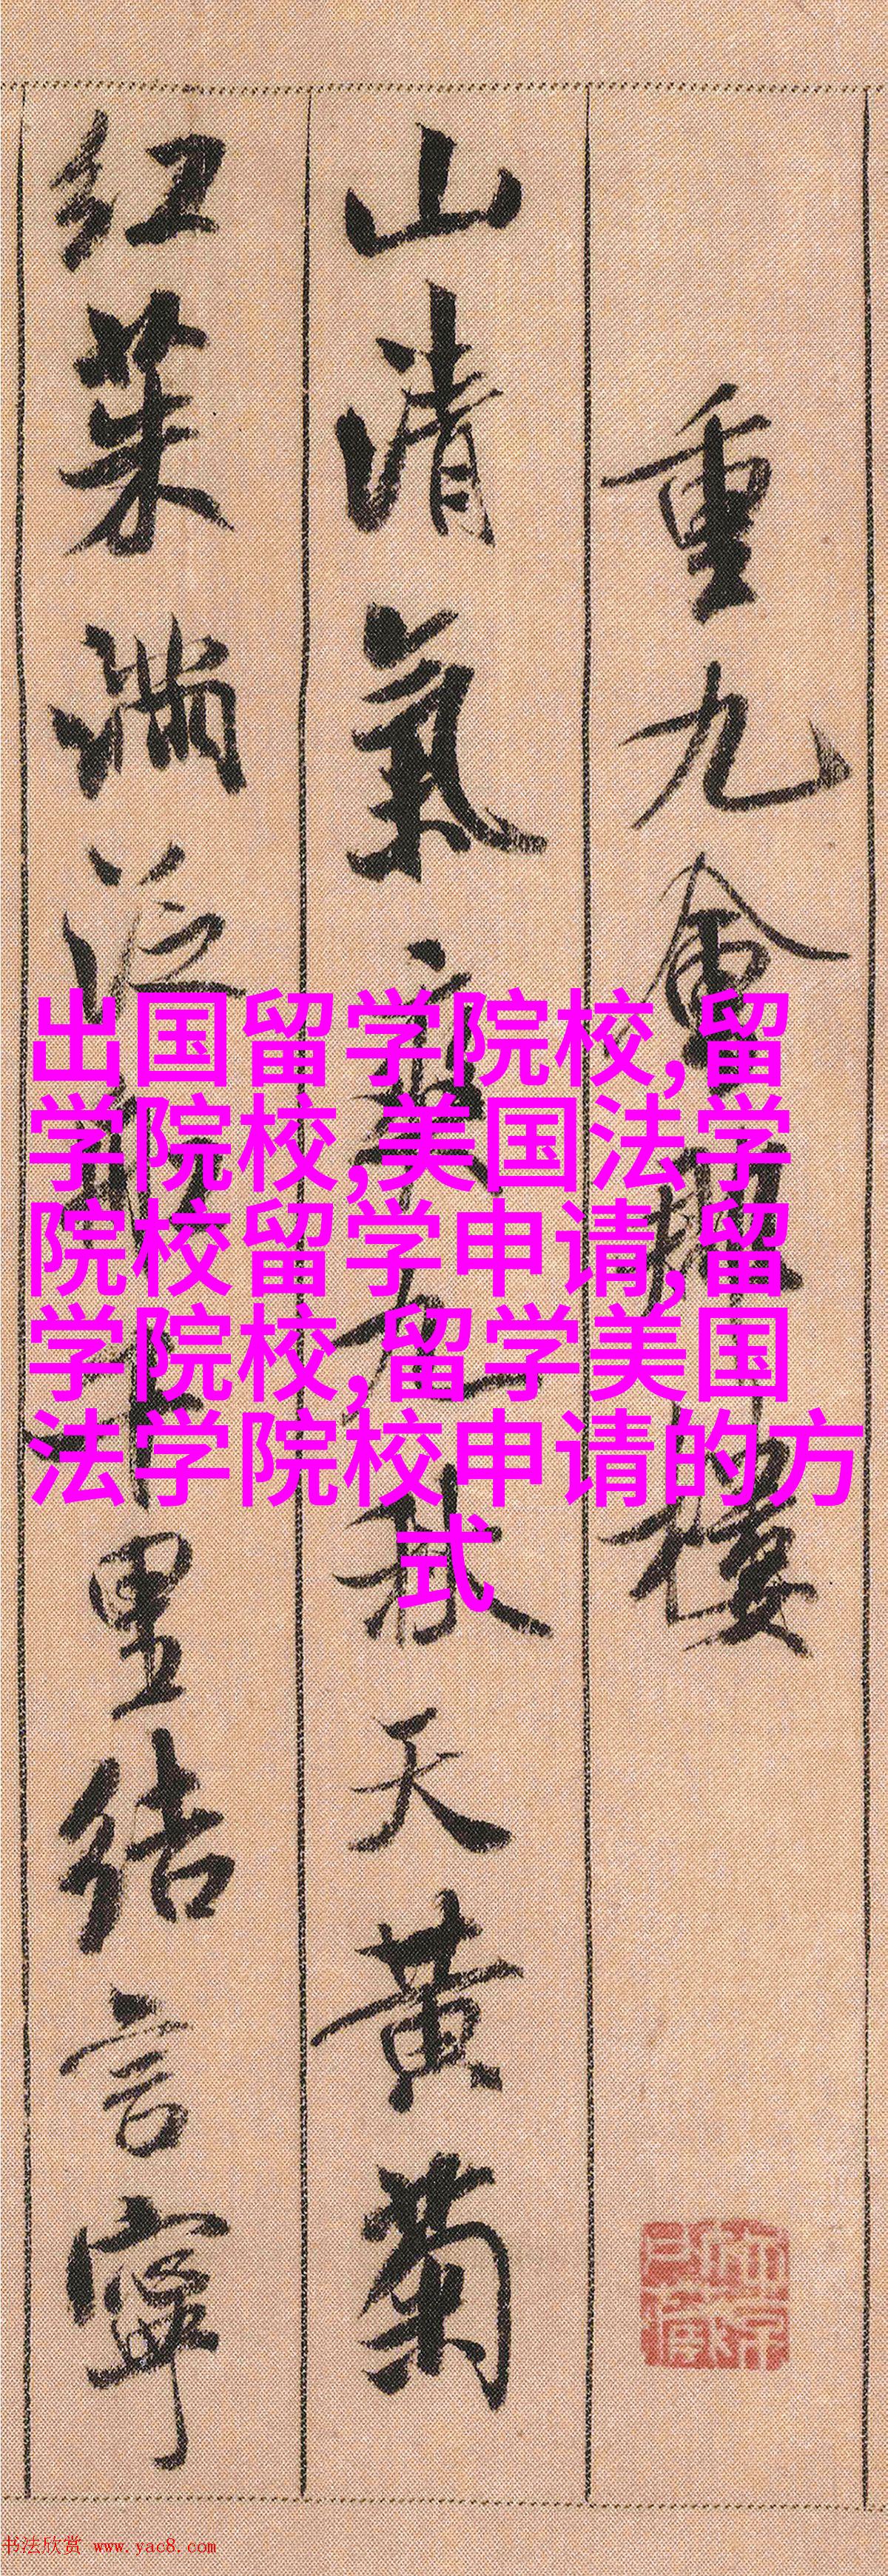 重九會郡樓
山清氣爽九秋天黃菊
紅茱滿泛船千里結言寧
出国留学院校,留
学院校,美国法学
院校留学申请,留
学院校,留学美国
法学院校申请的方
式
书法欣赏 www.yac8.com